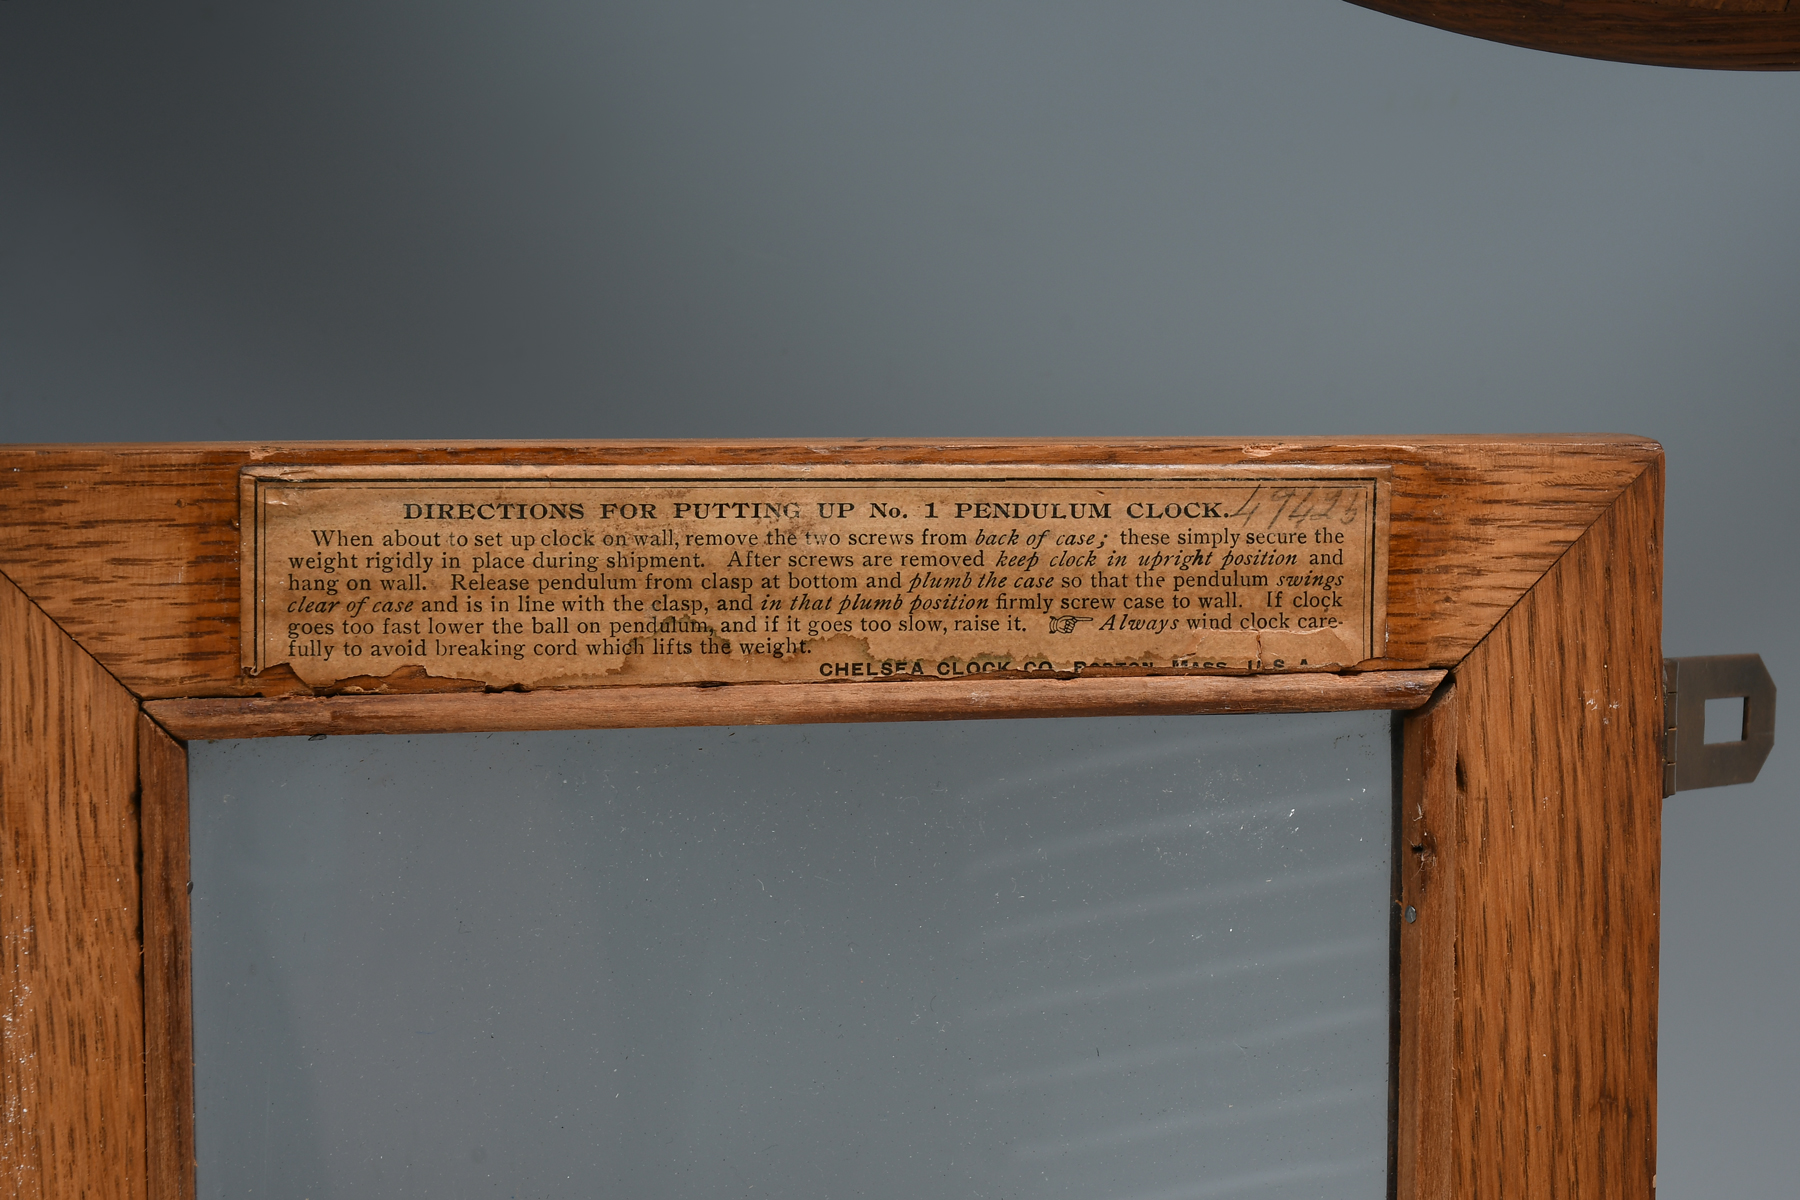 DIRECTIONS FOR PUTTING UP No. 1 PENDULUM CLOCK. 49425
When about to set up clock on wall, remove the two screws from back of case; these simply secure the
weight rigidly in place during shipment. After screws are removed keep clock in upright position and
hang on wall. Release pendulum from clasp at bottom and plumb the case so that the pendulum swings
clear of case and is in line with the clasp, and in that plumb position firmly screw case to wall. If clock
goes too fast lower the ball on pendulum, and if it goes too slow, raise it. ☞ Always wind clock care-
fully to avoid breaking cord which lifts the weight.
CHELSEA CLOCK CO. BOSTON, MASS. U.S.A.